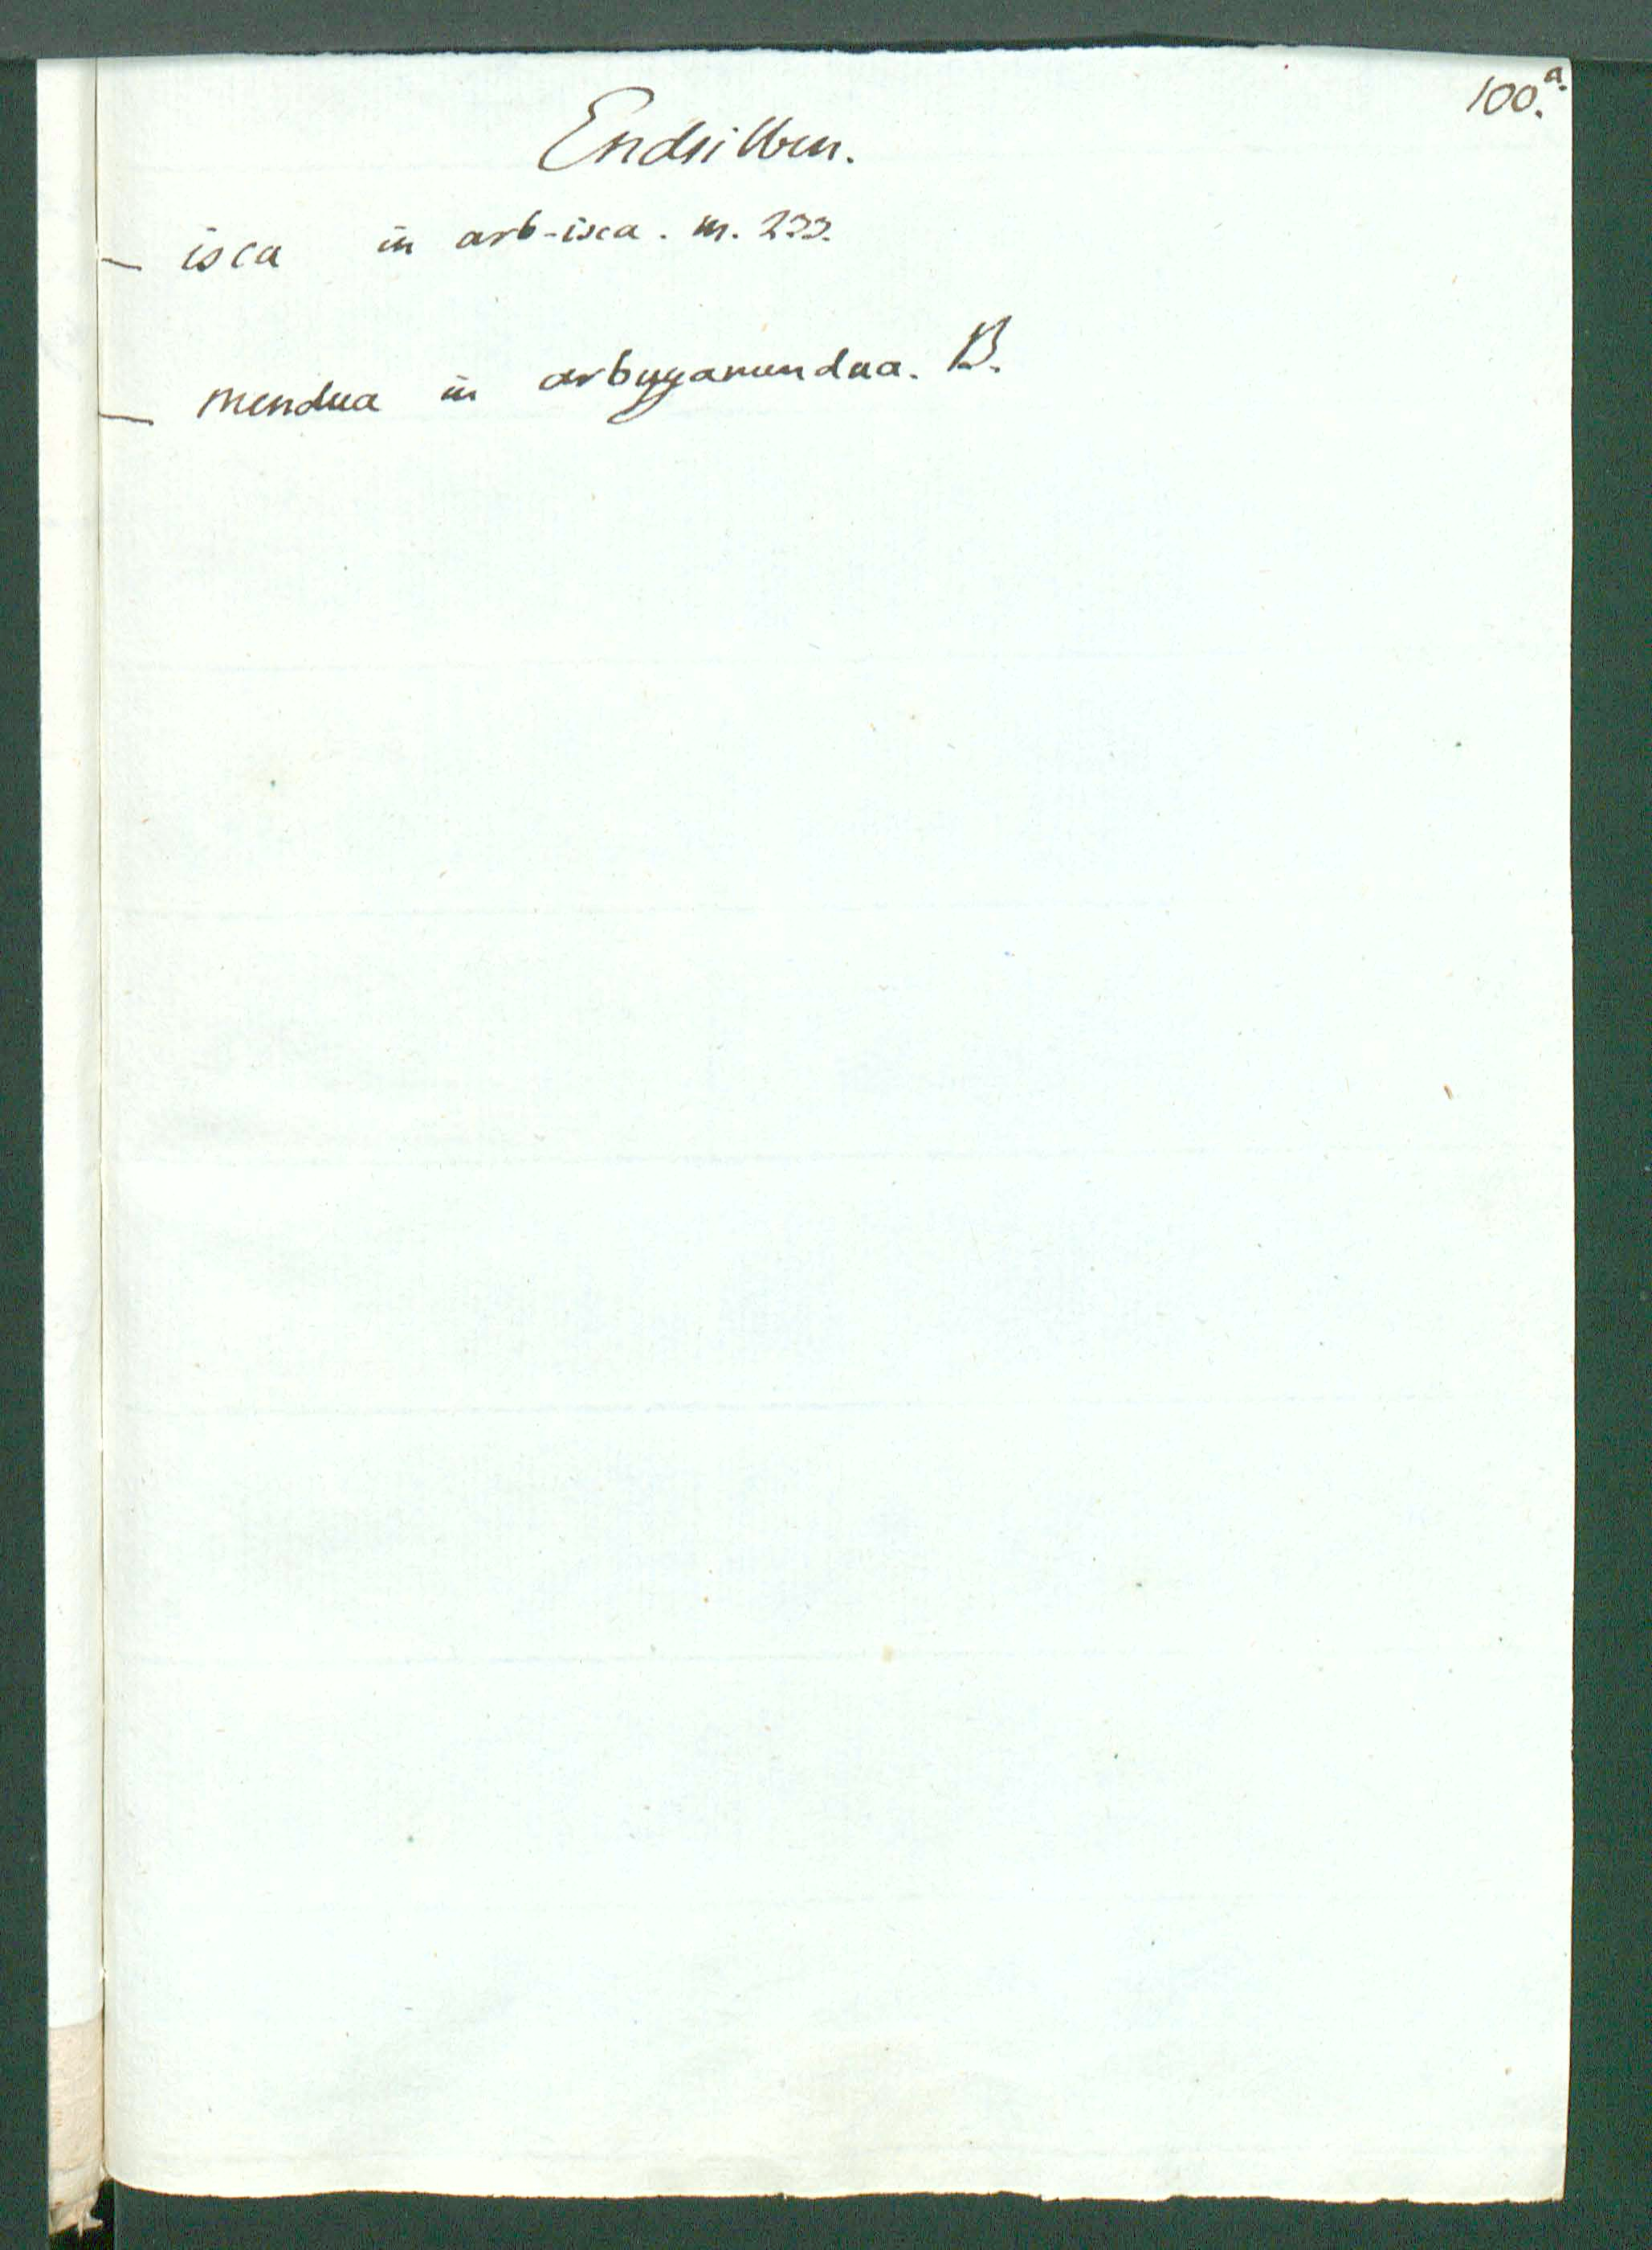 100.a.
Endsilben.
— isca in arb-isca. m. 233.
— mendua in arbuyamendua. B.